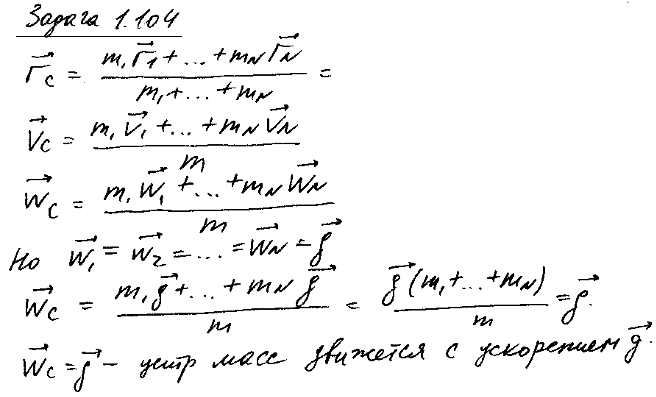 Задача 1.104
r⃗c = (m₁r⃗₁ + ... + m_N r⃗_N) / (m₁ + ... + m_N) =
V⃗c = (m₁V⃗₁ + ... + m_N V⃗_N) / m
W⃗c = (m₁W⃗₁ + ... + m_N W⃗_N) / m
Но W⃗₁ = W⃗₂ = ... = W⃗_N = g⃗
W⃗c = (m₁g⃗ + ... + m_N g⃗) / m = g⃗(m₁ + ... + m_N) / m = g⃗.
W⃗c = g⃗ – центр масс движется с ускорением g⃗.